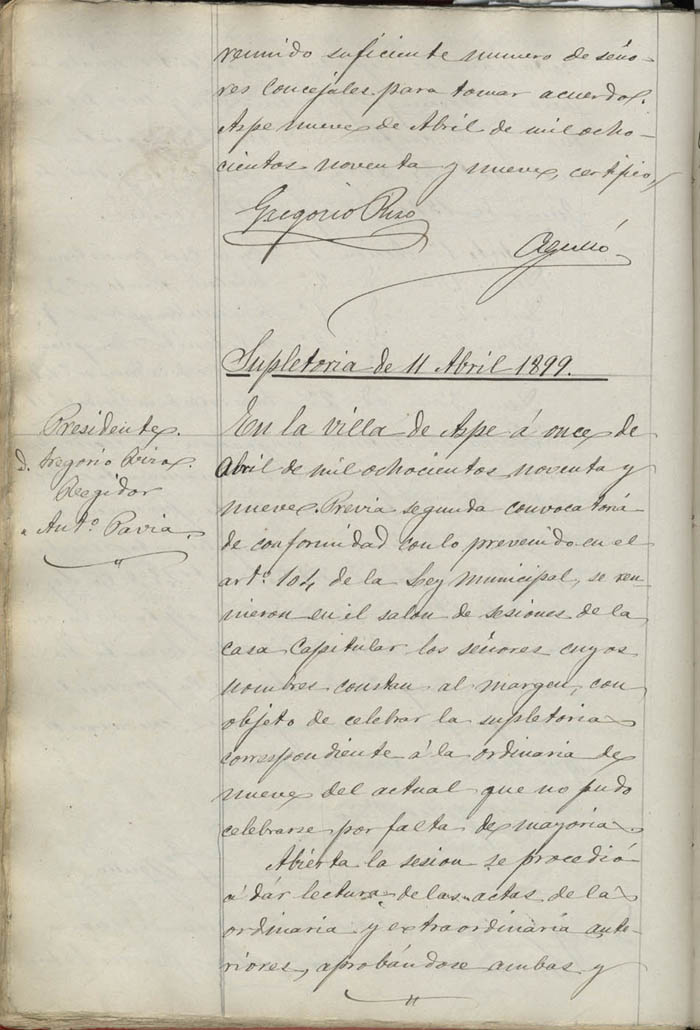 reunido suficiente numero de seño-
res Concejales para tomar acuerdo.
Aspe nueve de Abril de mil ocho-
cientos noventa y nueve, certifico,
Gregorio
Supletoria de 11 Abril 1899.
Presidente.
D. Gregorio
Regidor
" Antº. Pavia.
En la villa de Aspe á once de
Abril de mil ochocientos noventa y
nueve. Previa segunda convocatoria
de conformidad con lo prevenido en el
artº. 104 de la Ley Municipal, se reu-
nieron en el salon de sesiones de la
casa Capitular los señores cuyos
nombres constan al margen, con
objeto de celebrar la supletoria
correspondiente á la ordinaria de
nueve del actual que no pudo
celebrarse por falta de mayoria.
Abierta la sesion se procedió
á dár lectura de las actas de la
ordinaria y extraordinaria ante-
riores, aprobándose ambas y